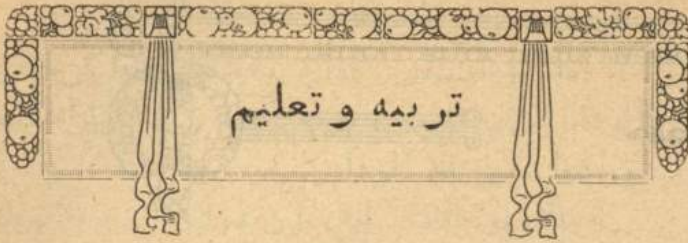 تربیه و تعلیم